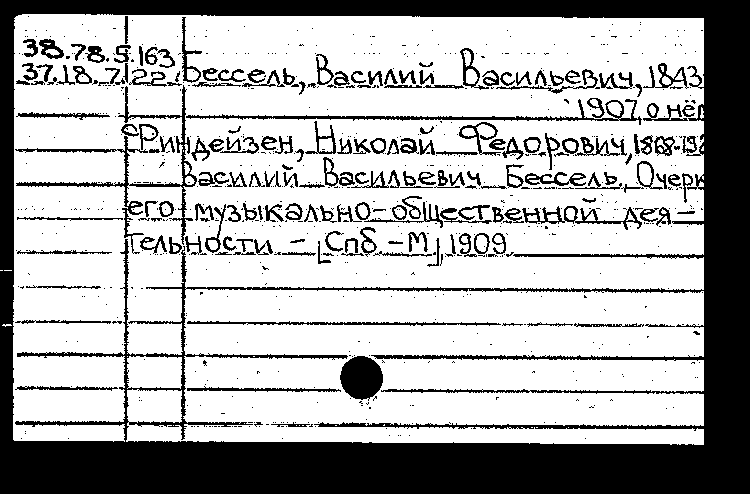 38.78.5.163
37.18.7.22. Бессель, Василий Васильевич, 1843-
1907, о нём
Финдейзен, Николай Федорович, 1868-192
Василий Васильевич Бессель, Очерк
его музыкально-общественной дея-
тельности - [Спб - М], 1909